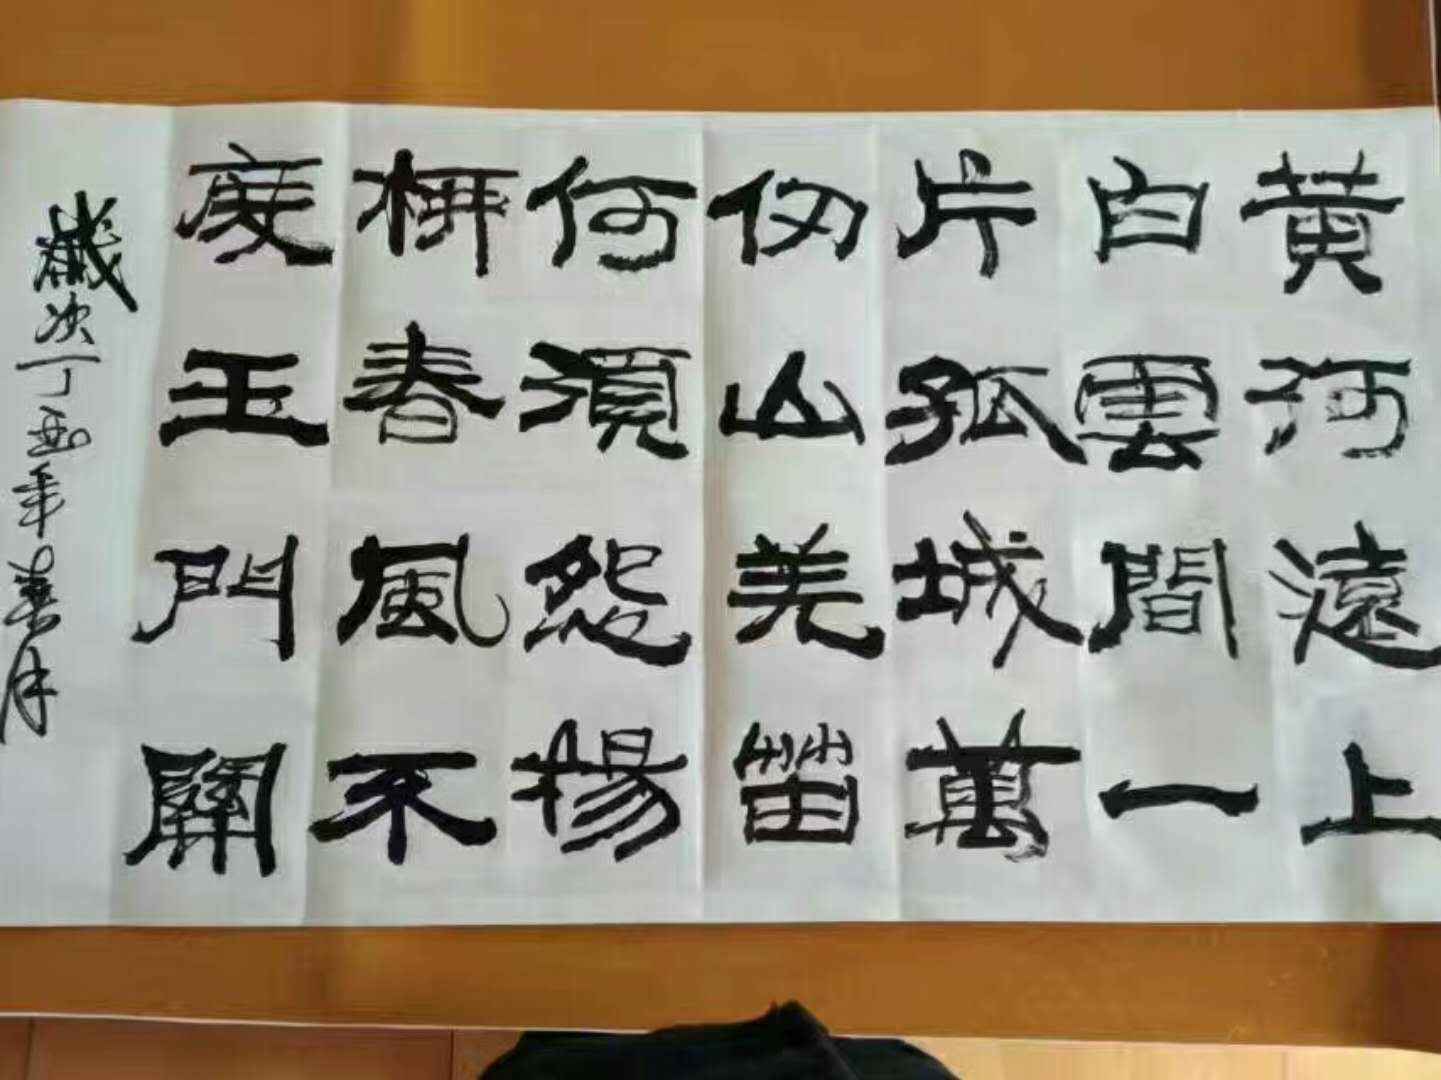 黄河遠上
白雲間一
片孤城萬
仞山羌笛
何須怨楊
柳春風不
度玉門關
歲次丁酉年春月